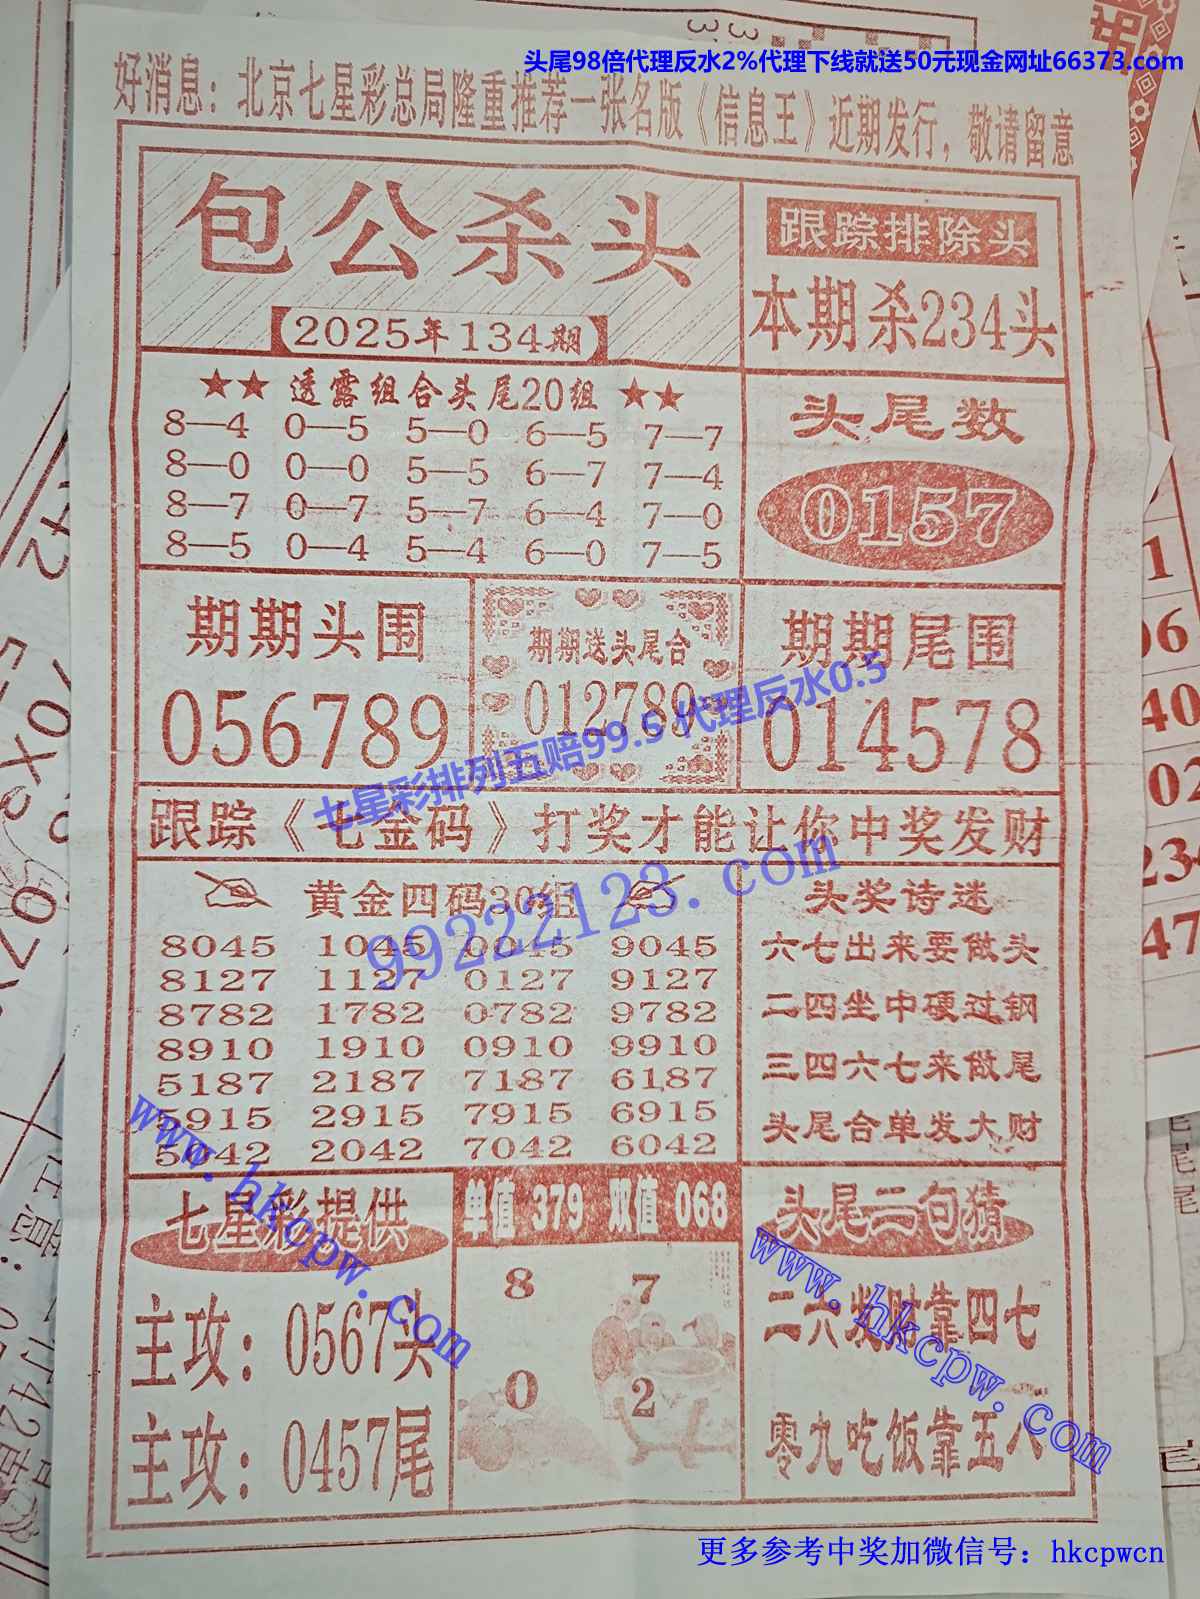 头尾98倍代理反水2%代理下线就送50元现金网址66373.com
好消息：北京七星彩总局隆重推荐一张名版《信息王》近期发行，敬请留意
包公杀头
【2025年134期】
跟踪排除头
本期杀234头
★★ 透露组合头尾20组 ★★
8—4 0—5 5—0 6—5 7—7
8—0 0—0 5—5 6—7 7—4
8—7 0—7 5—7 6—4 7—0
8—5 0—4 5—4 6—0 7—5
头尾数
0157
期期头围
056789
期期送头尾合
012789
期期尾围
014578
七星彩排列五赔99.5 代理反水0.5
跟踪《七金码》打奖才能让你中奖发财
黄金四码30组
8045 1045 0045 9045
8127 1127 0127 9127
8782 1782 0782 9782
8910 1910 0910 9910
5187 2187 7187 6187
5915 2915 7915 6915
5042 2042 7042 6042
99222123.com
头奖诗迷
六七出来要做头
二四坐中硬过钢
三四六七来做尾
头尾合单发大财
www.hkcpw.com
七星彩提供
主攻：0567头
主攻：0457尾
单值 379 双值 068
8 7
0 2
头尾二句猜
二六发财靠四七
零九吃饭靠五八
www.hkcpw.com
更多参考中奖加微信号：hkcpwcn